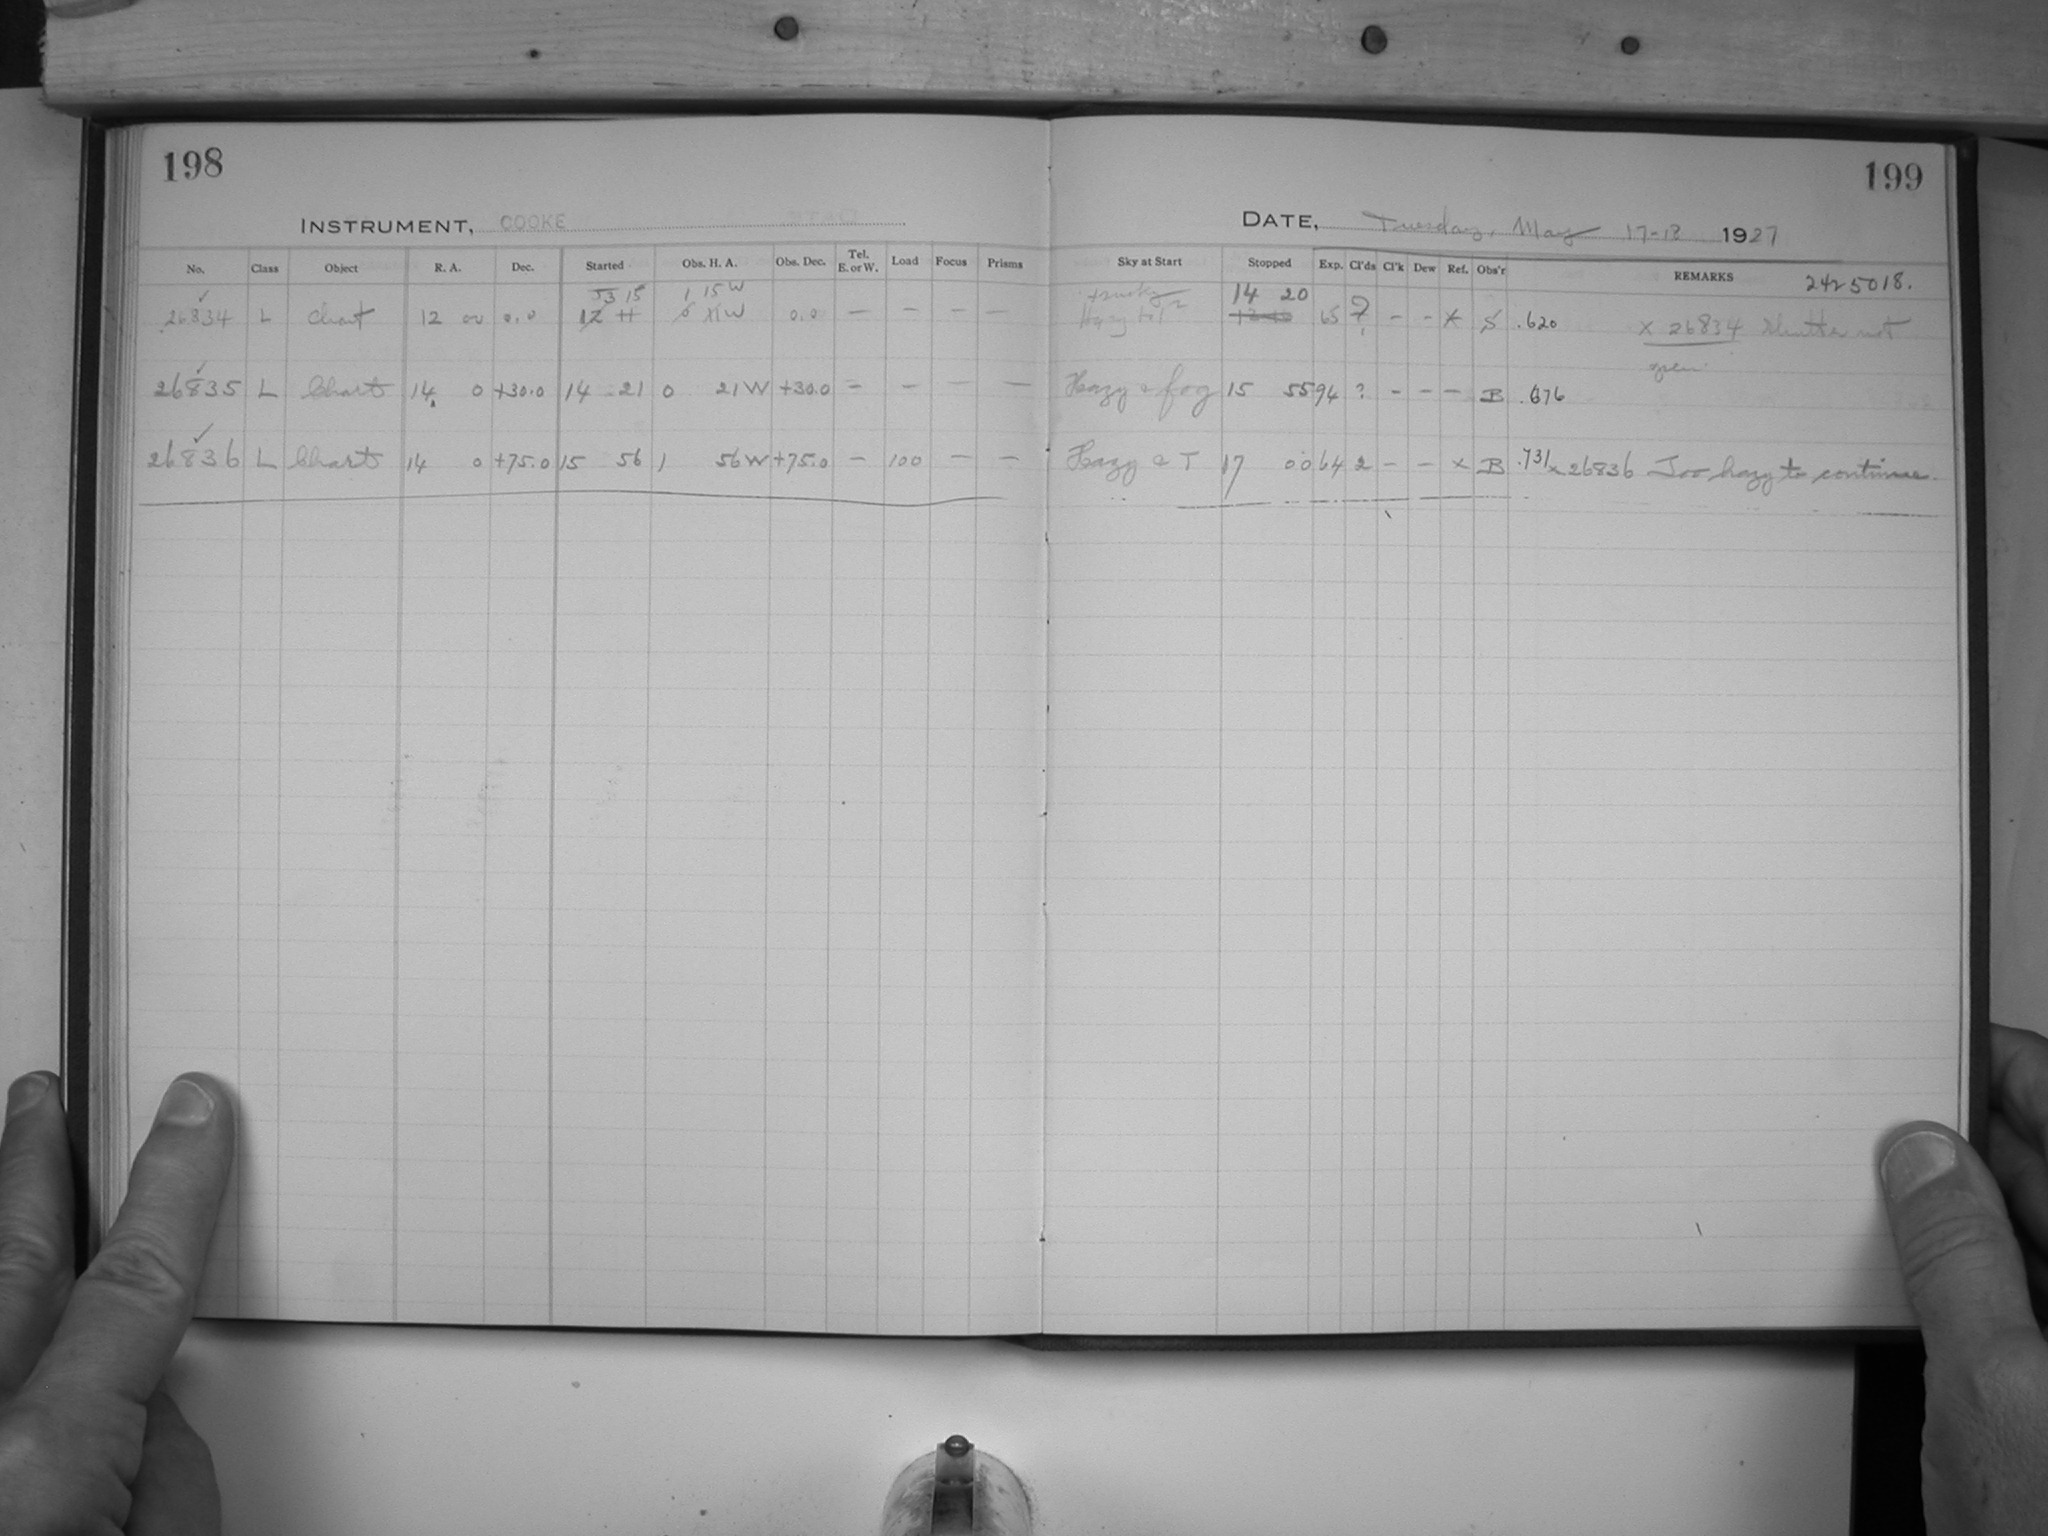 198
INSTRUMENT, COOKE
No. Class Object R. A. Dec. Started Obs. H. A. Obs. Dec. Tel. E. or W. Load Focus Prisms
13 15 1 15 W
26834 L Chart 12 00 0.0 12 11 0 11 W 0.0 — — — —
26835 L Chart 14 0 +30.0 14 21 0 21 W +30.0 — — — —
26836 L Chart 14 0 +75.0 15 56 1 56 W +75.0 — 100 — —
199
DATE, Tuesday, May 17-18 1927
Sky at Start Stopped Exp. Cl'ds Cl'k Dew Ref. Obs'r REMARKS 2425018.
14 20
Hazy 65 ? – – x S .620 x 26834 Shutter not
open.
Hazy & fog 15 55 94 ? – – – B .676
Hazy & T 17 00 64 2 – – x B .731 x 26836 Too hazy to continue.